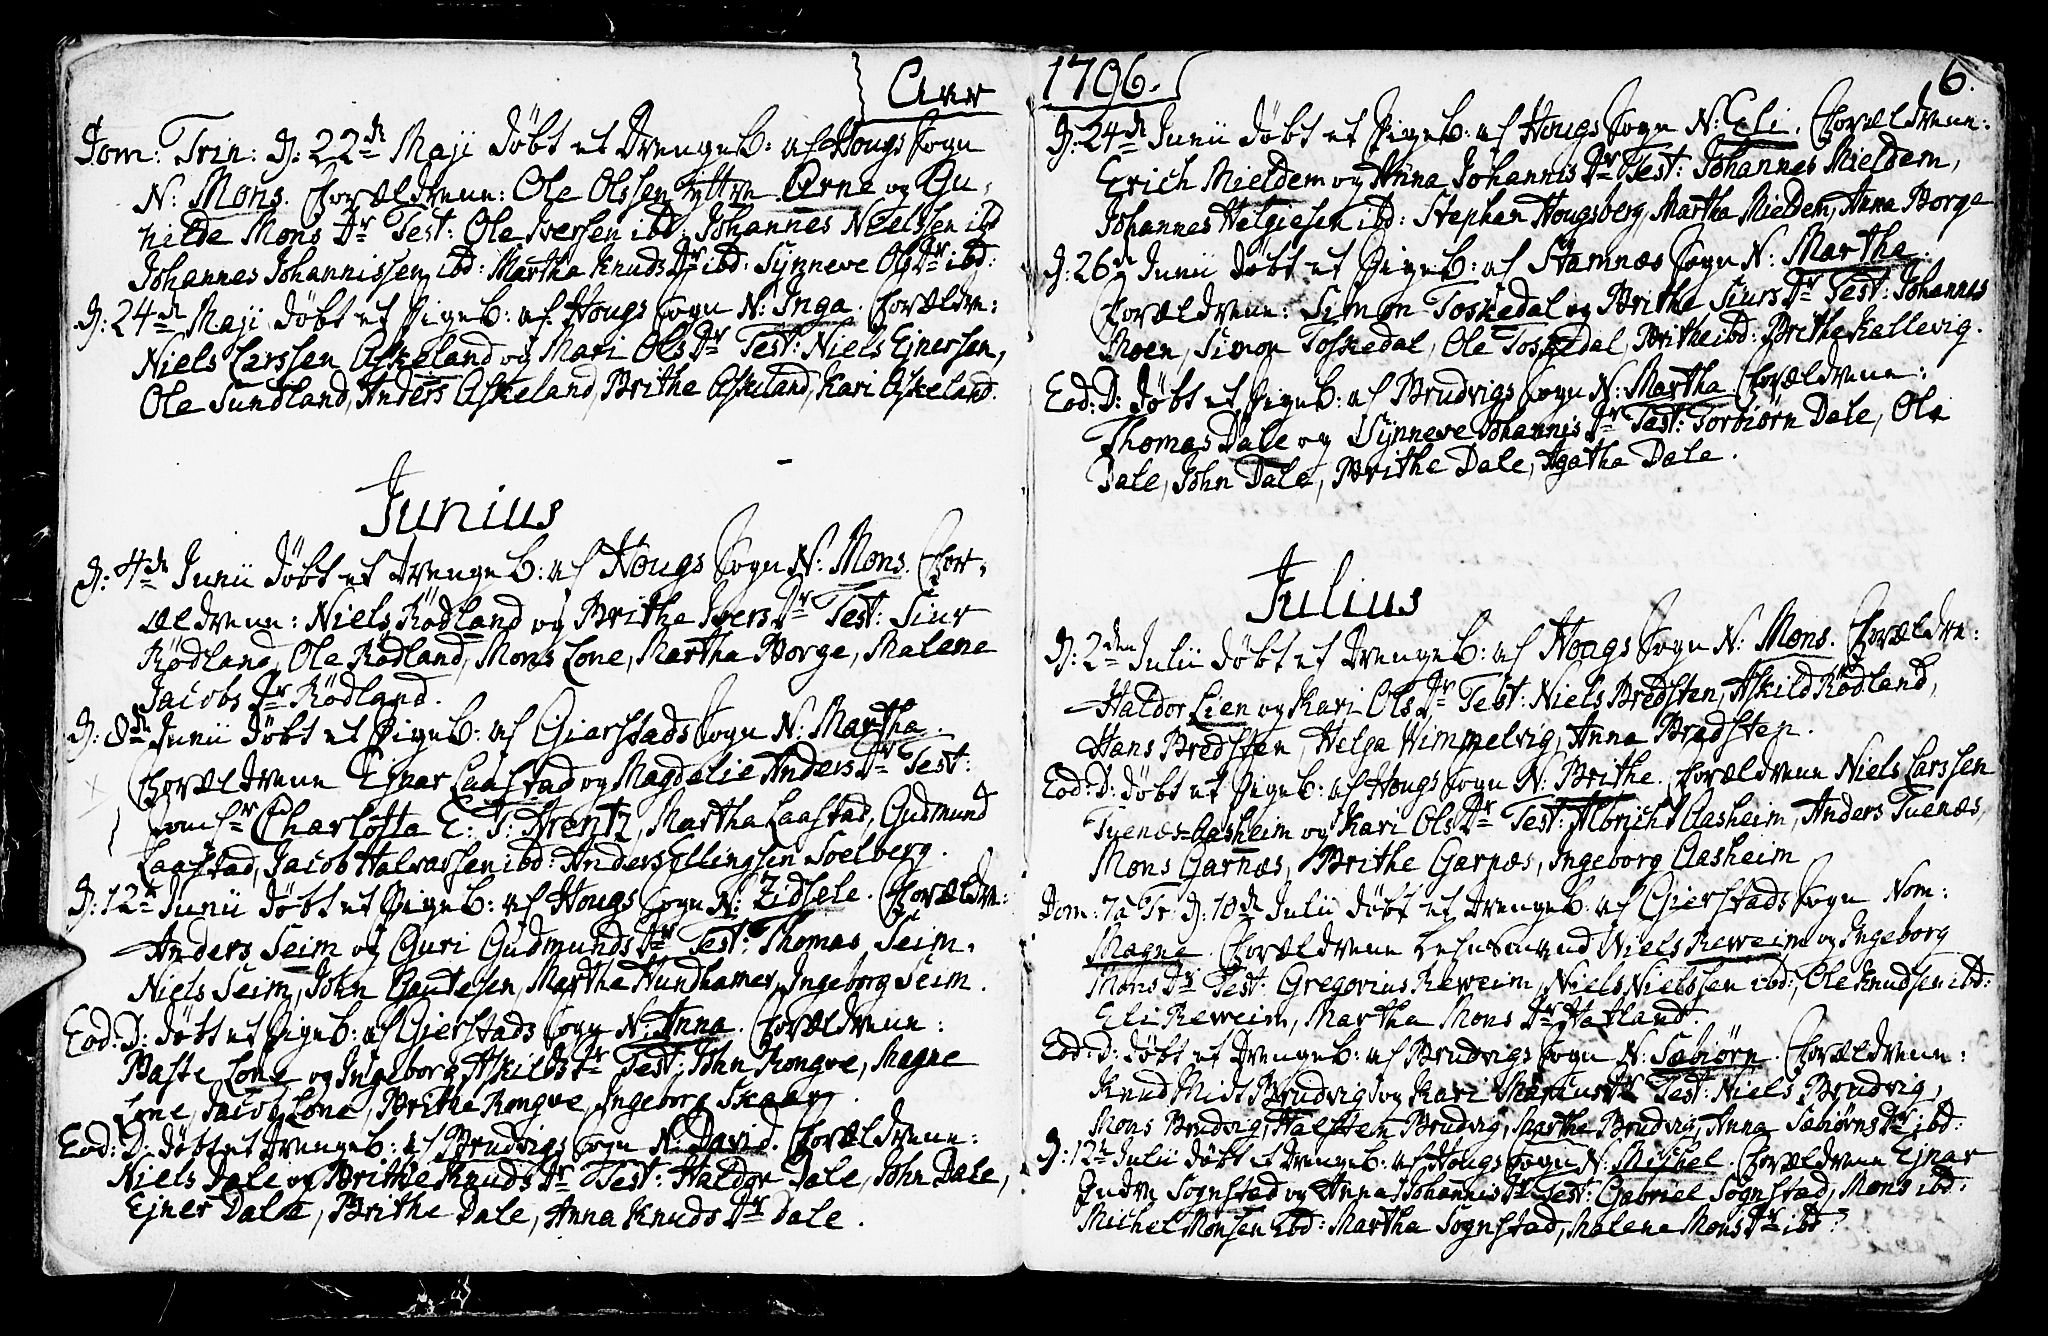 Ao
Dom: Trin: D: 22de Maji døbt et Drengeb: af Hougs Sogn
N: Mons. Forældrene: Ole Olssen Yttre Arne og Gu-
hilde Mons Dr Test: Ole Iversen ibd: Johannes Neelssen ibd
Johannes Johannissen ibd: Martha Knuds Dr ibd: Synneve Ols Dr ibd:
D: 24de Maji døbt et Pigeb: af Hougs Sogn N: Inga. Forældre:
Niels Larssen Askeland og Mari Ols Dr Test: Niels Ejnersen,
Ole Sundland, Anders Askeland, Brithe Askeland, Kari Askeland.
Junius
D: 4de Junii døbt et Drengeb: af Hougs Sogn N: Mons. For-
ældrene: Niels Rødland og Brithe Ivers Dr Test: Siur
Rødland, Ole Rødland, Mons Lone, Martha Borge, Malene
Jacobs Dr Rødland.
D: 8de Junii døbt et Pigeb: af Gierstads Sogn N: Martha.
Forældrene Ejnar Laastad og Magdelie Anders Dr Test:
Jomfr Charlotta E: T: Arentz, Martha Laastad, Gudmund
Laastad, Jacob Halvarssen ibd: Anders Ellingsen Soelberg.
D: 12te Junii døbt et Pigeb: af Hougs Sogn N: Zidsele. Forældre:
Anders Seim og Guri Gudmunds Dr Test: Thomas Seim.
Niels Seim, John Gautesen, Martha Hundhamer, Ingeborg Seim.
Eod: D: døbt et Pigeb: af Gierstads Sogn N: Anna. Forældrene:
Baste Lone og Ingeborg Askilds Dr Test: John Rongve, Magne
Lone, Jacob Lone, Brithe Rongve, Ingeborg Skaar.
Eod: D: døbt et Drengeb: af Brudvigs Sogn N: David. Forældrene:
Niels Dale og Brithe Knuds Dr Test: Haldor Dale, John Dale,
Ejner Dale, Brithe Dale, Anna Knuds Dr Dale.
1796. 6.
D: 24de Junii døbt et Pigeb: af Hougs Sogn N: Eli. Forældrene:
Erich Mieldem og Anna Johannis Dr Test: Johannes Mieldem,
Johannes Helgiesen ibd: Stephen Hougsberg, Martha Mieldem, Anna Borge
D: 26de Junii døbt et Pigeb: af Stamnæs Sogn N: Martha.
Forældrene: Simon Toskedal og Brithe Siurs Dr Test: Johannes
Moen, Simon Toskedal, Ole Toskedal, Brithe ibd: Brithe Kallevig.
Eod: D: døbt et Pigeb: af Brudvigs Sogn N: Martha. Forældrene:
Thomas Dale og Synneve Johannis Dr Test: Torbiørn Dale, Ole
Dale, John Dale, Brithe Dale, Agatha Dale.
Julius
D: 2den Julii døbt et Drengeb: af Hougs Sogn N: Mons. Forældre:
Haldor Lien og Kari Ols Dr Test: Niels Bredsten, Askild Rødland,
Hans Bredsten, Helga Himmelvig, Anna Bredsten.
Eod: D: døbt et Pigeb: af Hougs Sogn N: Brithe. Forældrene Niels Larssen
Tuenæs=Aasheim og Kari Ols Dr Test: Albricht Aasheim, Anders Tuenæs,
Mons Garnæs, Brithe Garnæs, Ingeborg Aasheim
Dom: 7a Tr: D: 10de Julii døbt et Drengeb: af Gierstads Sogn Nom:
Magne. Forældrene Lehnsmand Niels Reweim og Ingeborg
Mons Dr Test: Gregorius Reweim, Niels Nielssen ibd:, Ole Knudsen ibd:
Eli Reweim, Martha Mons Dr Hatland.
Eod: D: døbt et Drengeb: af Brudvigs Sogn N: Sæbiørn. Forældrene:
Knud Midt Brudvig og Kari Marcus Dr Test: Niels Brudvig,
Mons Brudvig, Halsten Brudvig, Marthe Brudvig, Anna Sæbiørns Dr ibd:
D: 12te Julii døbt et Drengeb: af Hougs Sogn N: Michel. Forældrene Ejnar
Indre Sognstad og Anna Johannis Dr Test: Gabriel Sognstad, Mons ibd:
Michel Monsen ibd: Martha Sognstad, Malena Mons Dr ibd: